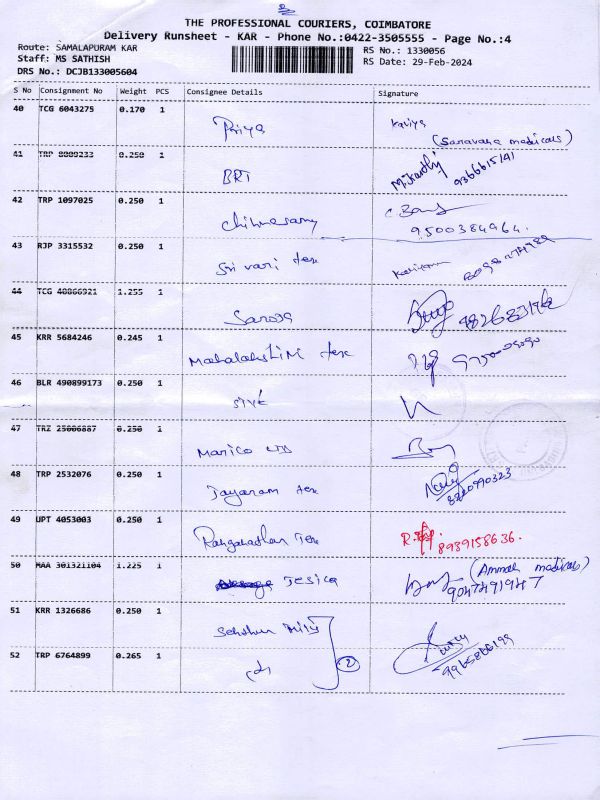 THE PROFESSIONAL COURIERS, COIMBATORE
Delivery Runsheet - KAR - Phone No.:0422-3505555 - Page No.:4
Route: SAMALAPURAM KAR
RS No.: 1330056
Staff: MS SATHISH
RS Date: 29-Feb-2024
DRS No.: DCJB133005604
S No Consignment No Weight PCS Consignee Details Signature
40 TCG 6043275 0.170 1 Priya Kaviya
(Saravana medicals)
41 TRP 8089233 0.250 1 BRT 9366615141
42 TRP 1097025 0.250 1
9500384964.
43 RJP 3315532 0.250 1 Sri vari tex
44 TCG 40866921 1.255 1 Saroja
45 KRR 5684246 0.245 1 Mahalakshmi tex
46 BLR 490899173 0.250 1
47 TRZ 25006887 0.250 1 Marico LTD
48 TRP 2532076 0.250 1 Jayaram tex
8220990323
49 UPT 4053003 0.250 1 Ranganathan Tex 8939158636.
50 MAA 301321104 1.225 1 Jesica (Ammah medicals)
9047491947
51 KRR 1326686 0.250 1
52 TRP 6764899 0.265 1 2